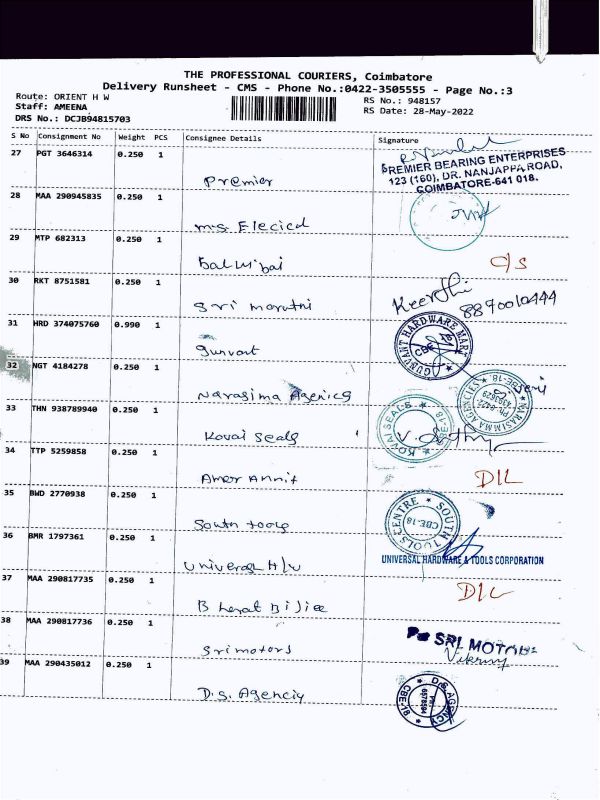 THE PROFESSIONAL COURIERS, Coimbatore
Delivery Runsheet - CMS - Phone No.:0422-3505555 - Page No.:3
Route: ORIENT H W
Staff: AMEENA
DRS No.: DCJB94815703
RS No.: 948157
RS Date: 28-May-2022
S No Consignment No Weight PCS Consignee Details Signature
27 PGT 3646314 0.250 1 Premier
PREMIER BEARING ENTERPRISES
123 (160), DR. NANJAPPA ROAD,
COIMBATORE-641 018.
28 MAA 290945835 0.250 1 m.s. Elecicd
29 MTP 682313 0.250 1 c/s
30 RKT 8751581 0.250 1 Sri maruthi Keerthi 8870010444
31 HRD 374075760 0.990 1 Gunvant
GUNVANT HARDWARE MART CBE-18
32 NGT 4184278 0.250 1 Narasima Agencies
NARASIMMA AGENCIES CBE-18
33 THN 938789940 0.250 1 Kovai Seals
KOVAI SEALS CBE-18
34 TTP 5259858 0.250 1 Amer Annit D/L
35 BWD 2770938 0.250 1 South tools
SOUTH TOOLS CENTRE CBE-18
36 BMR 1797361 0.250 1 Universal H/w
UNIVERSAL HARDWARE & TOOLS CORPORATION
37 MAA 290817735 0.250 1 D/L
38 MAA 290817736 0.250 1 Sri motors
For SRI MOTORS
Vikram
39 MAA 290435012 0.250 1 D.S. Agenciy
D.S. AGENCY CBE-18